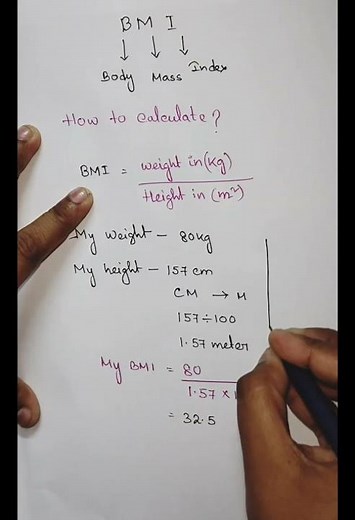 BMI
Body Mass Index
How to calculate?
BMI = weight in (kg)
Height in (m²)
My weight - 80kg
My height - 157 cm
CM → M
157÷100
1.57 meter
My BMI = 80
1.57 ×
= 32.5